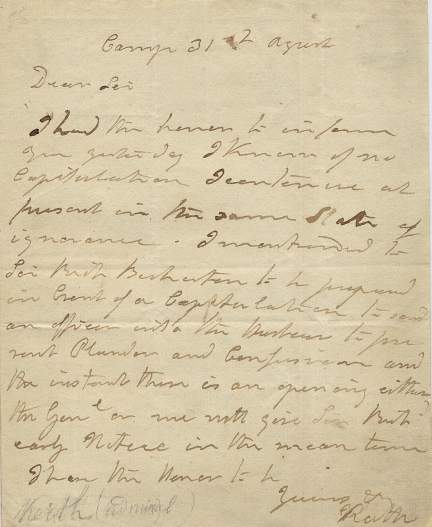 Camp 31st Agust
Dear Sir
I had the honor to inform
you yesterday I knew of no
Capitulation I continue at
present in the same State of
ignorance. I mentioned to
Sir Rich Bickerton to be prepared
in Event of a Capitulation to send
an officer into the Harbour to pre
vent Plunder and Confusion and
the instant there is an opening either
the Genl or me will give Sir Rich
early Notice in the mean time
I have the Honor to be
Yours &c
Keith
Keith (admiral)